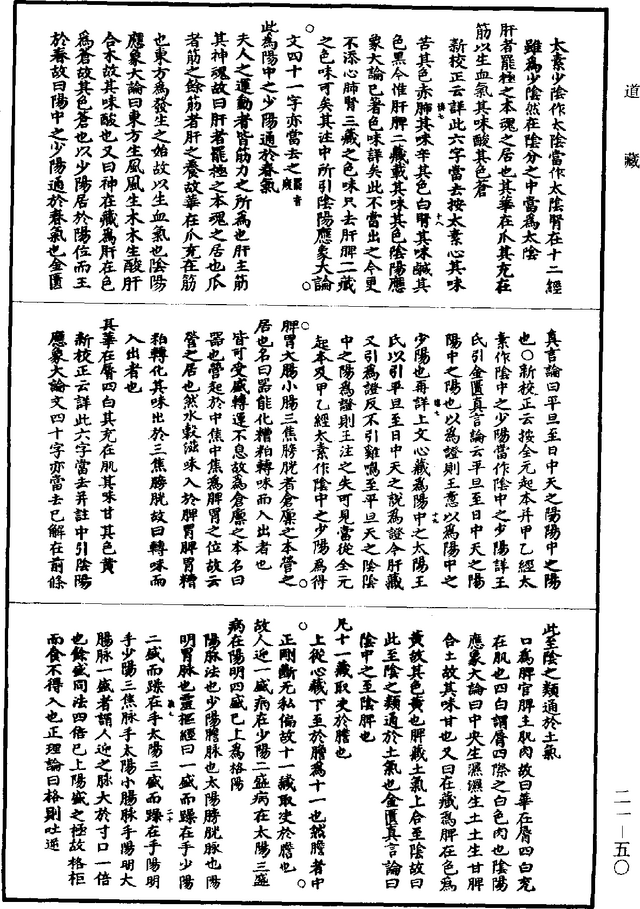 道藏
太素少陰作太陰當作太陰腎在十二經
雖為少陰然在陰分之中當為太陰
肝者罷極之本魂之居也其華在爪其充在
筋以生血氣其味酸其色蒼
新校正云詳此六字當去按太素心其味
苦其色赤肺其味辛其色白腎其味鹹其
色黑今惟肝脾二藏載其味其色陰陽應
象大論已著色味詳矣此不當出之今更
不添心肺腎三藏之色味只去肝脾二藏
之色味可矣其注中所引陰陽應象大論
文四十一字亦當去之
此為陽中之少陽通於春氣
夫人之運動者皆筋力之所為也肝主筋
其神魂故曰肝者罷極之本魂之居也爪
者筋之餘筋者肝之養故華在爪充在筋
也東方為發生之始故以生血氣也陰陽
應象大論曰東方生風風生木木生酸肝
合木故其味酸也又曰神在藏為肝在色
為蒼故其色蒼也以少陽居於陽位而王
於春故曰陽中之少陽通於春氣也金匱
真言論曰平旦至日中天之陽陽中之陽
也○新校正云按全元起本并甲乙經太
素作陰中之少陽當作陰中之少陽詳王
氏引金匱真言論云平旦至日中天之陽
陽中之陽也以為證則王意以為陽中之
少陽也再詳上文心藏為陽中之太陽王
氏以引平旦至日中天之說為證今肝藏
又引為證反不引雞鳴至平旦天之陰陰
中之陽為證則王注之失可見當從全元
起本及甲乙經太素作陰中之少陽為得
脾胃大腸小腸三焦膀胱者倉廩之本營之
居也名曰器能化糟粕轉味而入出者也
皆可受盛轉運不息故為倉廩之本名曰
器也營起於中焦中焦為脾胃之位故云
營之居也然水穀滋味入於脾胃脾胃糟
粕轉化其味出於三焦膀胱故曰轉味而
入出者也
其華在脣四白其充在肌其味甘其色黄
新校正云詳此六字當去并註中引陰陽
應象大論文四十字亦當去已解在前條
此至陰之類通於土氣
口為脾官脾主肌肉故曰華在脣四白充
在肌也四白謂脣四際之白色肉也陰陽
應象大論曰中央生濕濕生土土生甘脾
合土故其味甘也又曰在藏為脾在色為
黄故其色黄也脾藏土氣上合至陰故曰
此至陰之類通於土氣也金匱真言論曰
陰中之至陰脾也
凡十一藏取決於膽也
上從心藏下至於膽為十一也然膽者中
正剛斷无私偏故十一藏取決於膽也
故人迎一盛病在少陽二盛病在太陽三盛
病在陽明四盛已上為格陽
陽脉法也少陽膽脉也太陽膀胱脉也陽
明胃脉也靈樞經曰一盛而躁在手少陽
二盛而躁在手太陽三盛而躁在手陽明
手少陽三焦脉手太陽小腸脉手陽明大
腸脉一盛者謂人迎之脉大於寸口一倍
也餘盛同法四倍已上陽盛之極故格柜
而食不得入也正理論曰格則吐逆
二一—五〇